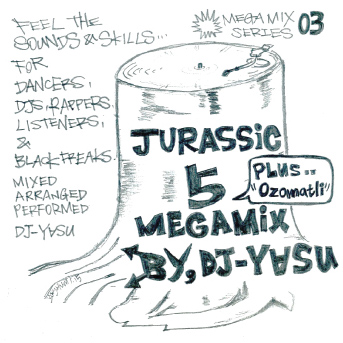 FEEL THE
SOUNDS & SKILLS...
FOR
DANCERS,
DJS, RAPPERS,
LISTENERS,
&
BLACK FREAKS.
MIXED
ARRANGED
PERFORMED
DJ-Y∀SU
MEGAMIX
SERIES 03
JURASSiC
5
MEGAMiX
BY, DJ-Y∀SU
PLUS..
"Ozomatli"